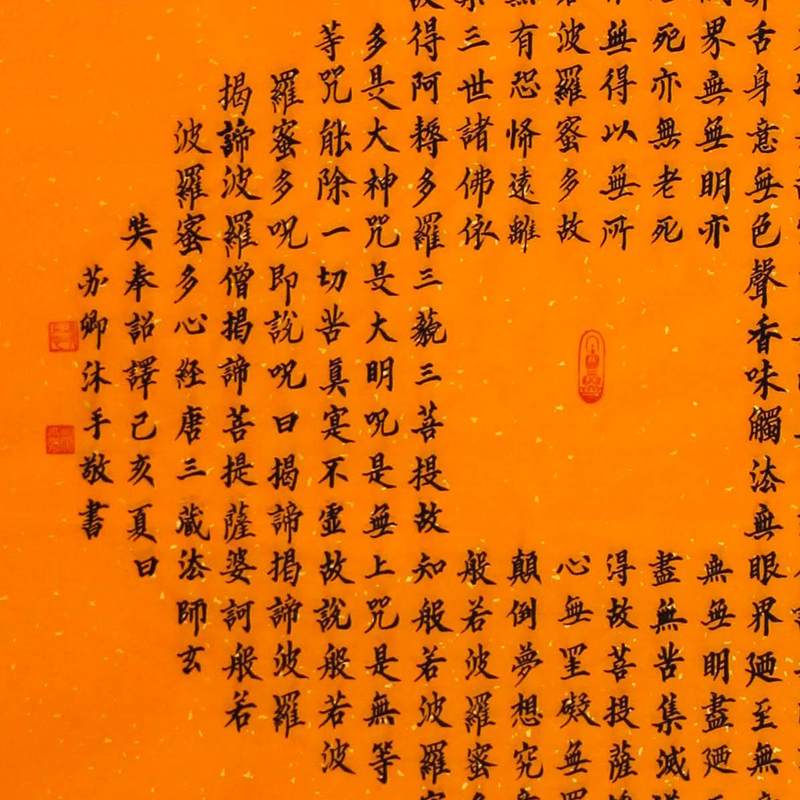 舌身意無色聲香味觸法無眼界廼至無
界無無明亦
無無明盡廼
死亦無老死
盡無苦集滅
無得以無所
得故菩提薩
波羅蜜多故
心無罣礙無
有恐怖遠離
顛倒夢想究
三世諸佛依
般若波羅蜜
得阿耨多羅三藐三菩提故知般若波羅
多是大神咒是大明呪是無上咒是無等
等咒能除一切苦真寔不虛故說般若波
羅蜜多呪即說呪曰揭諦揭諦波羅
揭諦波羅僧揭諦菩提薩婆訶般若
波羅蜜多心經唐三藏法師玄
奘奉詔譯己亥夏日
苏卿沐手敬書